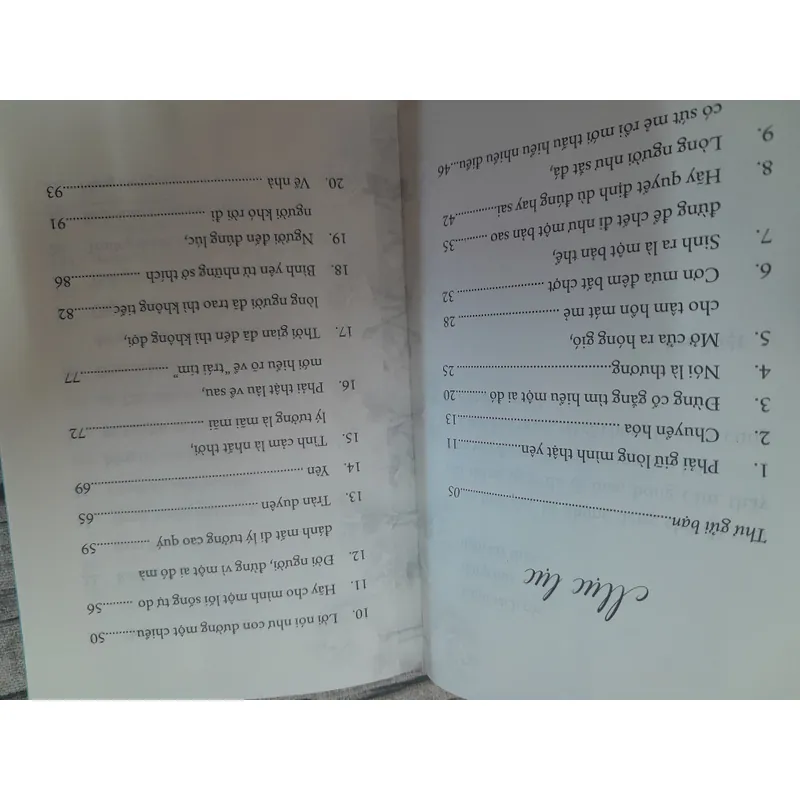 Mục lục
Thư gửi bạn..........................................05
1. Phải giữ lòng mình thật yên.................11
2. Chuyển hóa .......................................13
3. Đừng cố gắng tìm hiểu một ai đó ..........20
4. Nói là thương......................................25
5. Mở cửa ra hóng gió,
cho tâm hồn mát mẻ ............................28
6. Cơn mưa đêm bất chợt ........................32
7. Sinh ra là một bản thể,
đừng để chết đi như một bản sao ...........35
8. Hãy quyết định dù đúng hay sai..............42
9. Lòng người như sắt đá,
có sứt mẻ rồi mới thấu hiểu nhiều điều....46
10. Lời nói như con đường một chiều..........50
11. Hãy cho mình một lối sống tự do ..........56
12. Đời người, đừng vì một ai đó mà
đánh mất đi lý tưởng cao quý ................59
13. Trần duyên ........................................65
14. Yên ..................................................69
15. Tình cảm là nhất thời,
lý tưởng là mãi mãi .............................72
16. Phải thật lâu về sau,
mới hiểu rõ về "trái tim" ......................77
17. Thời gian đã đến thì không đợi,
lòng người đã trao thì không tiếc............82
18. Bình yên từ những sở thích ..................86
19. Người đến đúng lúc,
người khó rời đi .................................91
20. Về nhà ..............................................93